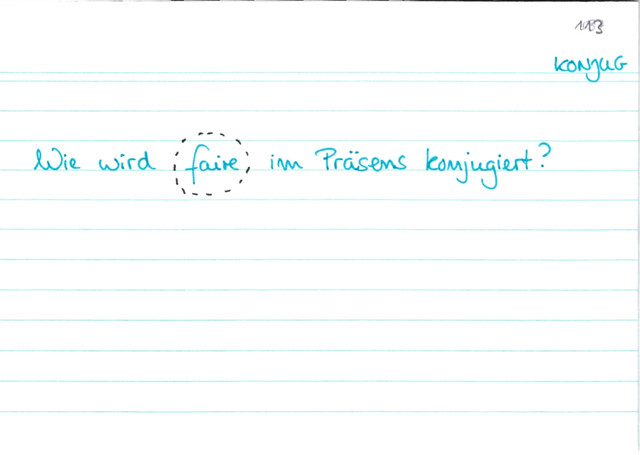 KONJUG
Wie wird faire im Präsens konjugiert?